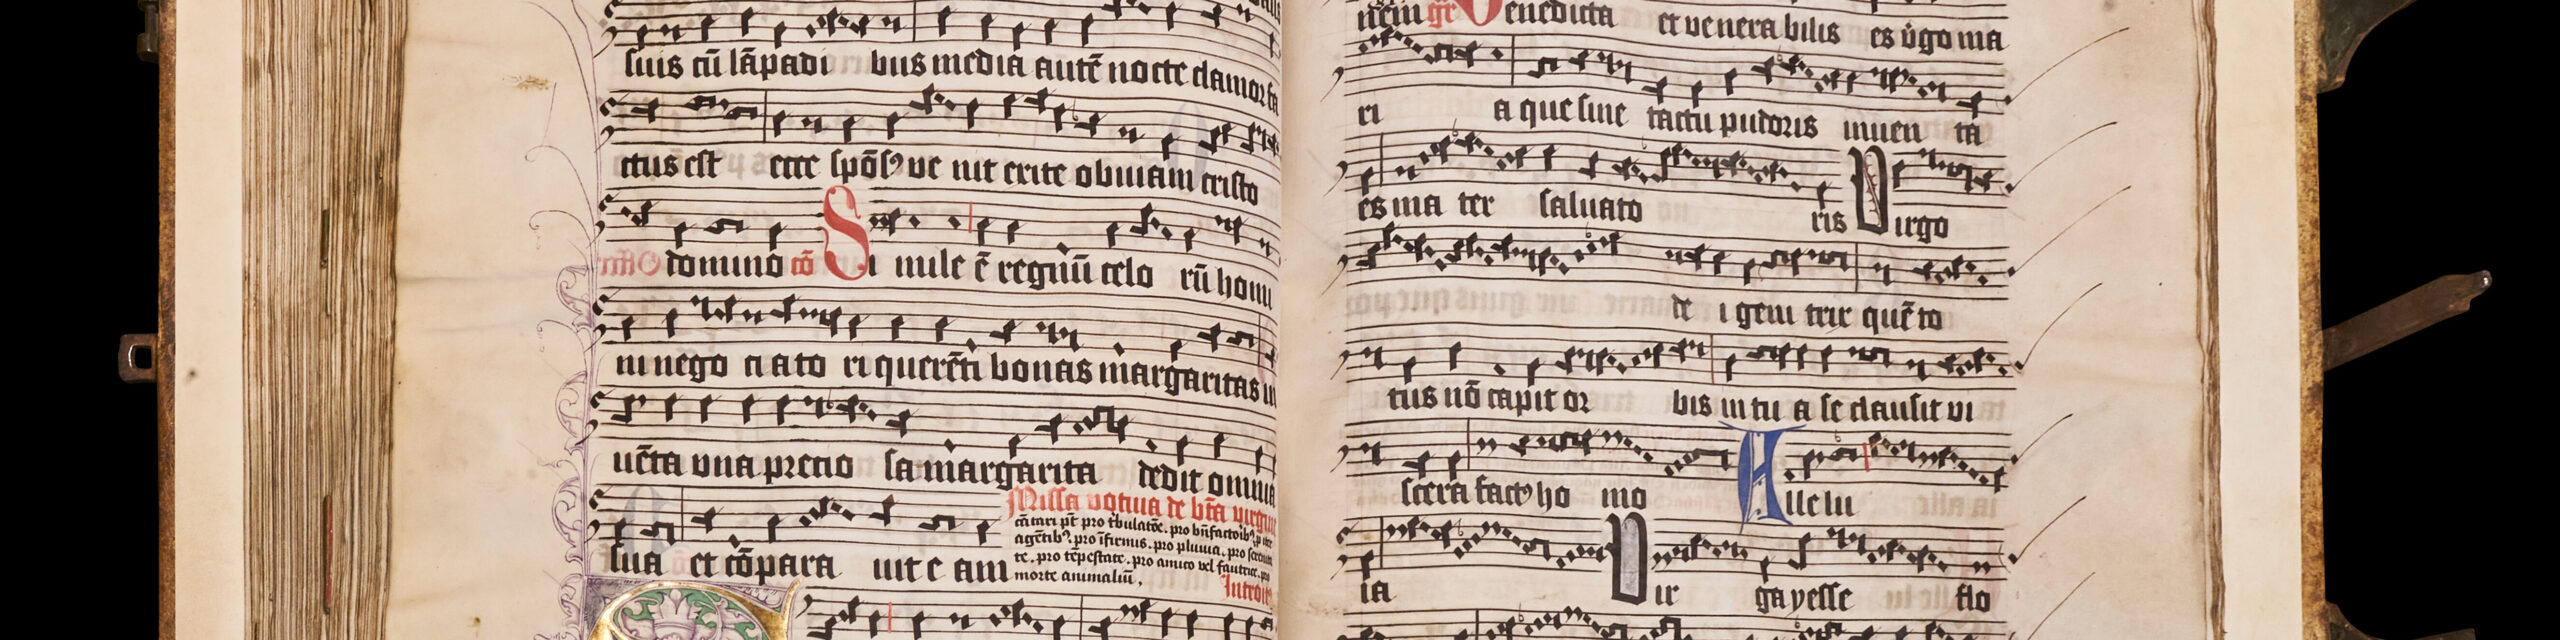 suis cū lāpadi bus media autē nocte clamor fa
ctus est ecce spōsꝰ ve nit exite obuiam cristo
domino cō Si mile ē regnū celo rū homi
ni nego ci ato ri querēti bonas margaritas in
uēta vna precio sa margarita dedit omnia
sua et cōpara uit e am
Missa votiua de bta virgine
cātari pt pro tbulatōe. pro bnfactoibꝰ
agētibꝰ. pro īfirmis. pro pluuia. pro
te. pro tēpestate. pro amico vel fautrice. pro
morte animaliū.
Introitꝰ
item gr Benedicta et ve nera bilis es ūgo ma
ri a que sine tactu pudoris inuen ta
es ma ter saluato ris Virgo
de i geni trix quē to
tus nō capit or bis in tu a se clausit vi
scera factꝰ ho mo Alle lu
ia Vir ga yesse flo